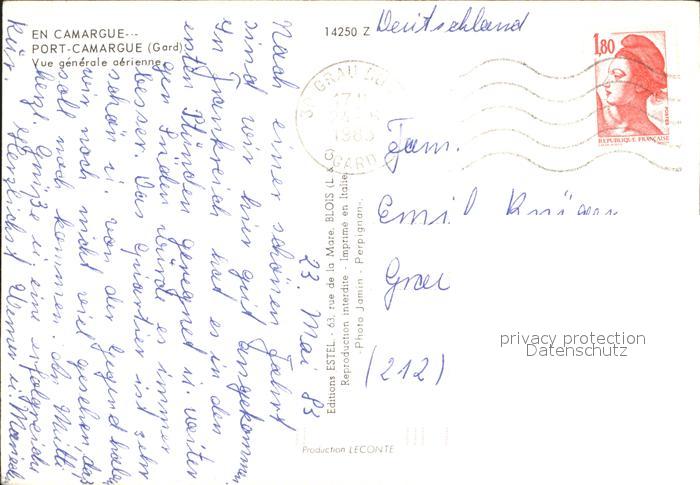 EN CAMARGUE...
PORT-CAMARGUE (Gard)
Vue générale aérienne
14250 Z
Deutschland
1,80
REPUBLIQUE FRANÇAISE
POSTES
GRAU DU
1983
GARD
Fam.
Emil
(212)
privacy protection
Datenschutz
Editions ESTEL - 63, rue de la Mare, BLOIS (L & C)
Reproduction interdite - Imprimé en Italie
Photo Jamin - Perpignan
Production LECONTE
23. Mai 83
Nach einer schönen Fahrt
sind wir hier gut angekommen.
In Frankreich hat es in den
ersten Stunden geregnet u. weiter
gen Süden würde es immer
besser. Das Quartier ist sehr
schön u. von der Gegend haben
wir noch nicht viel gesehen, das
soll noch kommen.
herzl. Grüße u. eine erfolgreiche
Kur. Herzlichst Werner u.